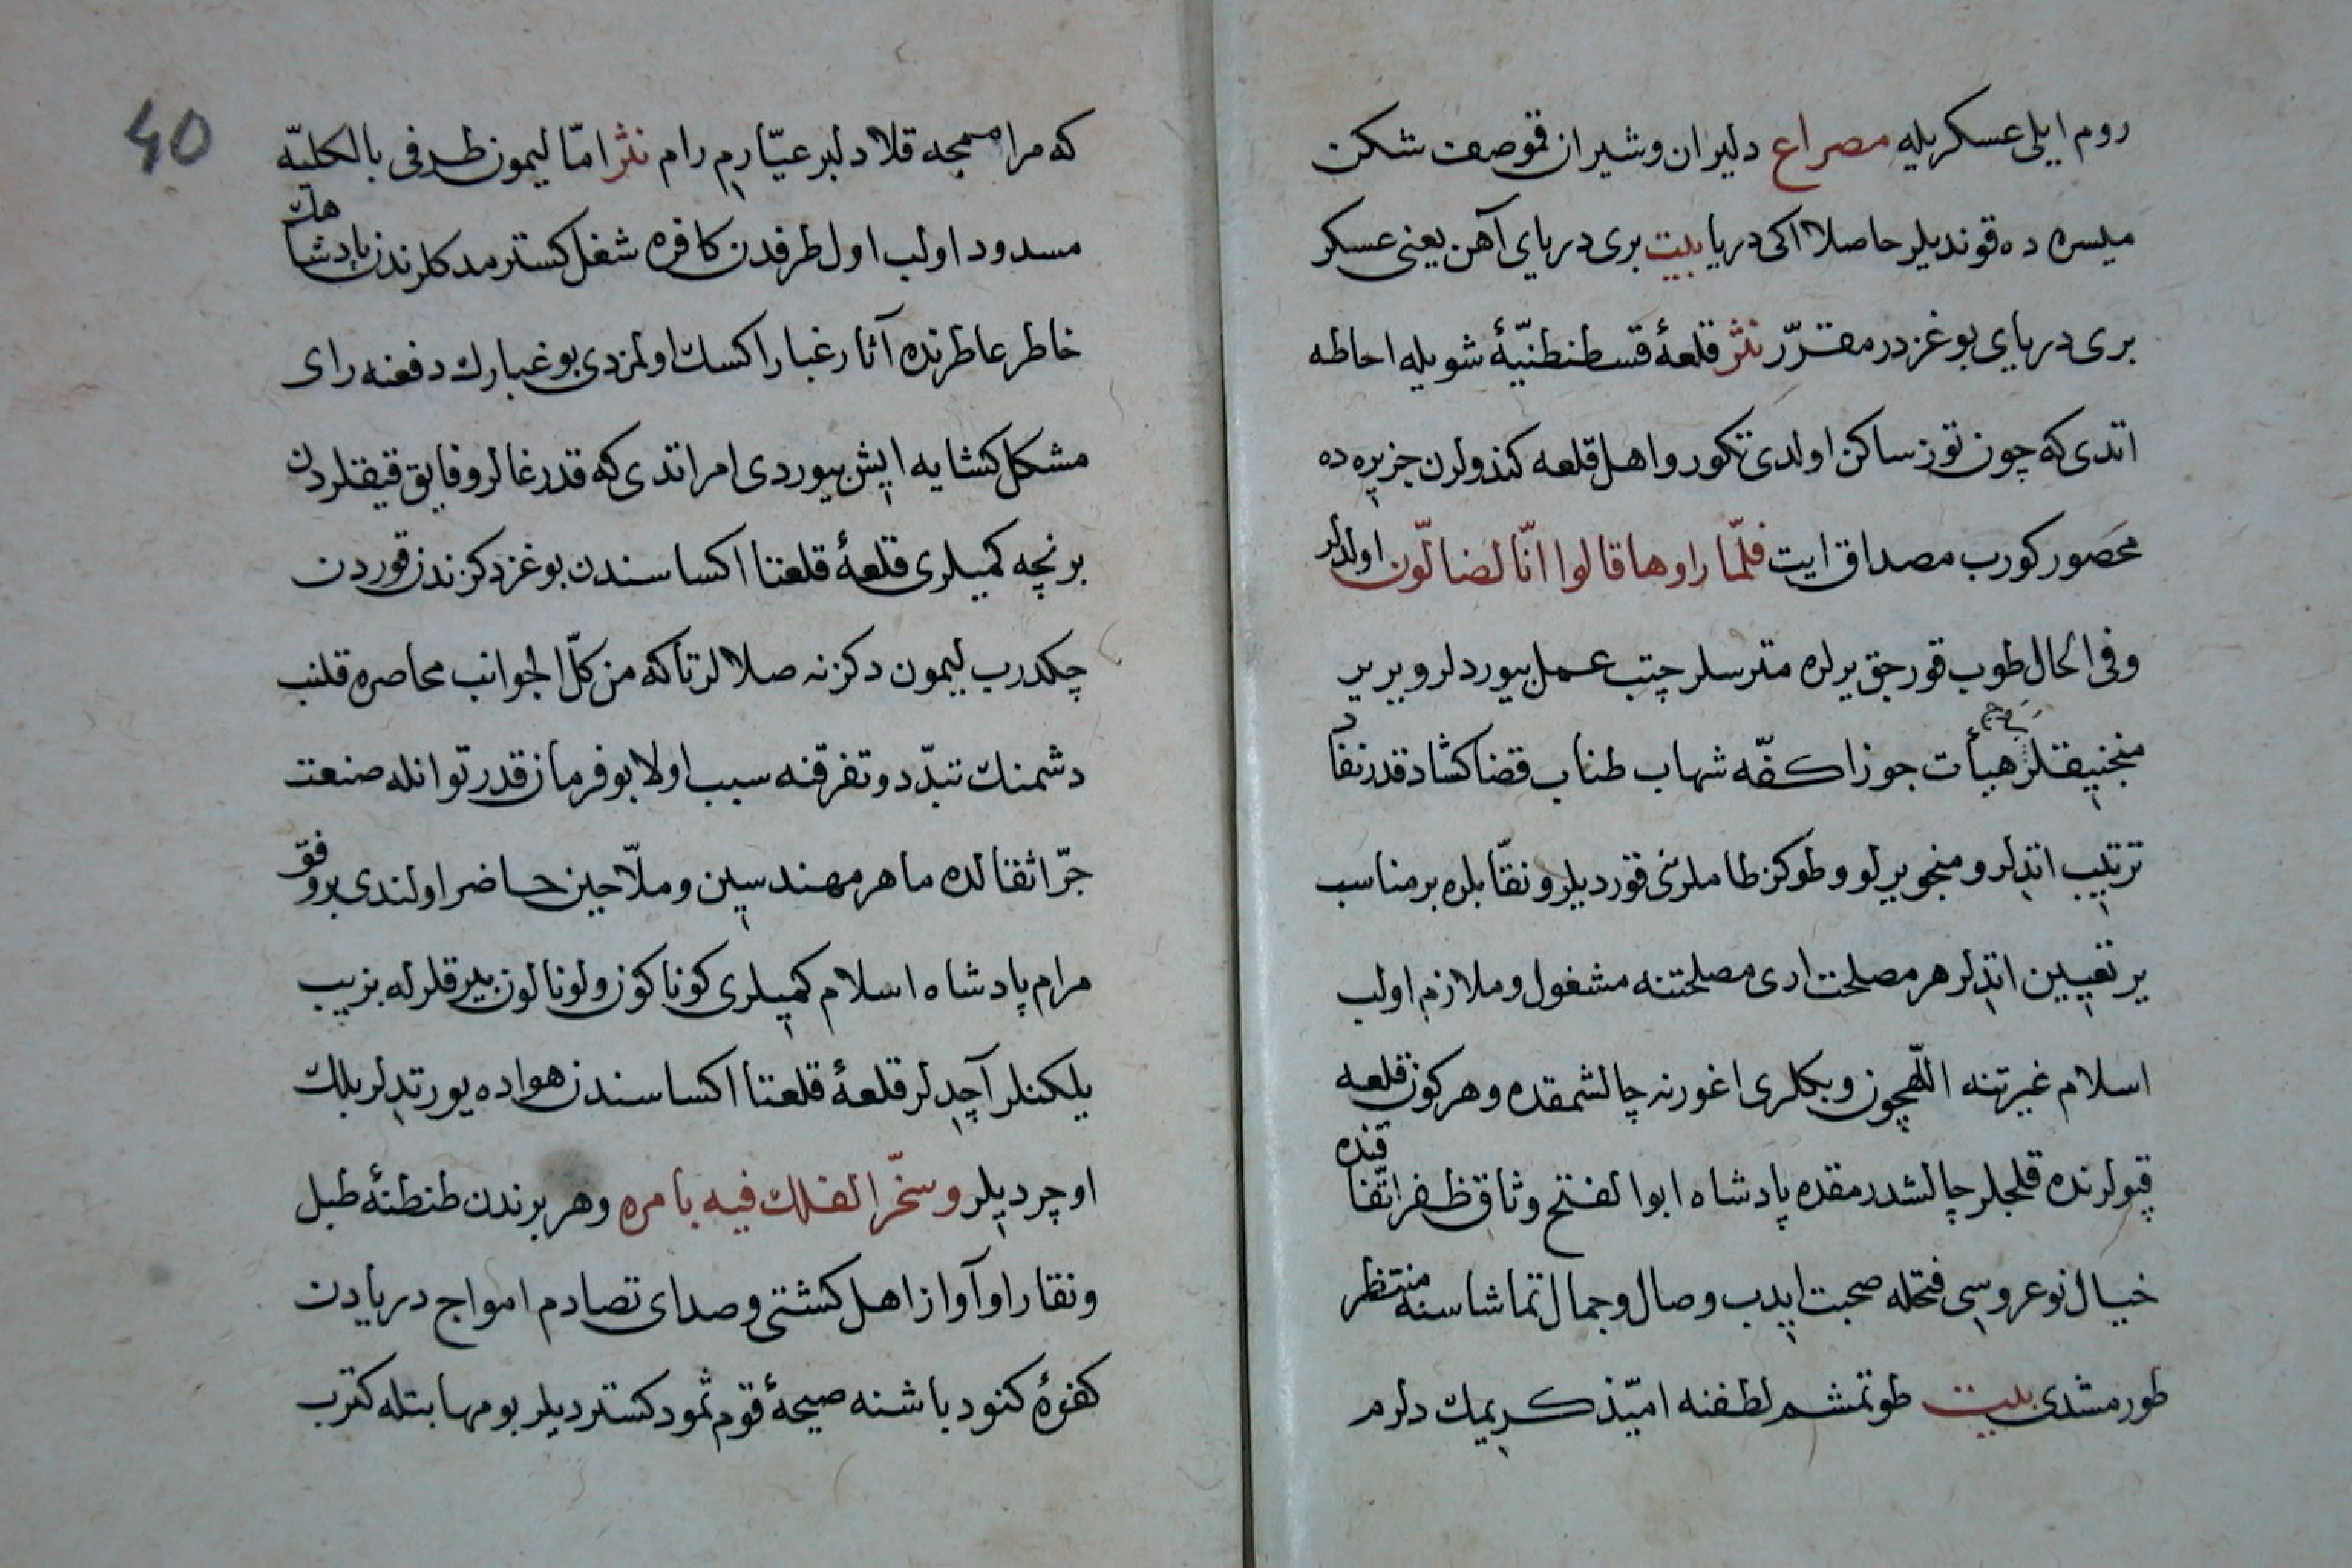 روم ایلی عسکریله مصراع دلیران و شیران قمو صف شکن
میسره ده قوندیلر حاصلا اکی دریا بیت بری دریای آهن یعنی عسکر
بری دریای بوغزدر مقرّر نثر قلعۀ قسطنطنیّۀ شویله احاطه
اتدی که چون تون ساکن اولدی تکور و اهل قلعه کندولرن جزیره ده
محصور کورب مصداق ایت فلمّا راوها قالوا انّا لضالّون اولدلر
و فی الحال طوب قورجق یرلره مترسلر چتب عمل بیوردلر و یر یر
منجنیقلر هیأت جوزا کفّه شهاب طناب قضا کشاد قدر نفاد
ترتیب اتدلر و منجویرلو و طوکز طاملرنی قوردیلر و نقّابلره بر مناسب
یر تعیین اتدلر هر مصلحت اری مصلحتنه مشغول و ملازم اولب
اسلام غیرتنه اللّهچون و بکلری اغورنه چالشمقده و هر کون قلعه
قپولرنده قلجلر چالشدرمقده پادشاه ابو الفتح وثاق ظفر اتّفاقنده
خیال نوعروسی فتحله صحبت ایدب وصال و جمال تماشاسنه منتظر
طورمشدی بیت طوتمشم لطفنه امیّذ کریمک دلرم
40
که مرامسمجه قلا دلبر عیّارم رام نثر امّا لیمون طرفی بالکلیّه
مسدود اولب اول طرفدن کافره شغل کسترمدکلرندن پادشاهک
خاطر عاطرنده آثار غبار اکسک اولمزدی بو غبارک دفعنه رای
مشکل کشایه اپش بیوردی امر اتدی که قدرغالر و قایق قیقلردن
بر نچه کمیلری قلعۀ قلعتا اکساسندن بوغز دکزندن قوردن
چکدرب لیمون دکزنه صلالر تا که من کلّ الجوانب محاصره قلنب
دشمنک تبدّد و تفرقنه سبب اولا بو فرمان قدر توانله صنعت
جرّ اثقالده ماهر مهندسین و ملّاحین حاضر اولندی بر وفق
مرام پادشاه اسلام کمیلری کوناکون و لونالون بیرقلرله بزیب
یلکنلر آچدلر قلعۀ قلعتا اکساسندن هواده یورتدلر بلک
اوچردیلر و سخّر الفلک فیه بامره و هر برندن طنطنۀ طبل
و نقارا و آواز اهل کشتی و صدای تصادم امواج دریادن
کفرۀ کنود باشنه صیحۀ قوم ثمود کستردیلر بو مهابتله کترب